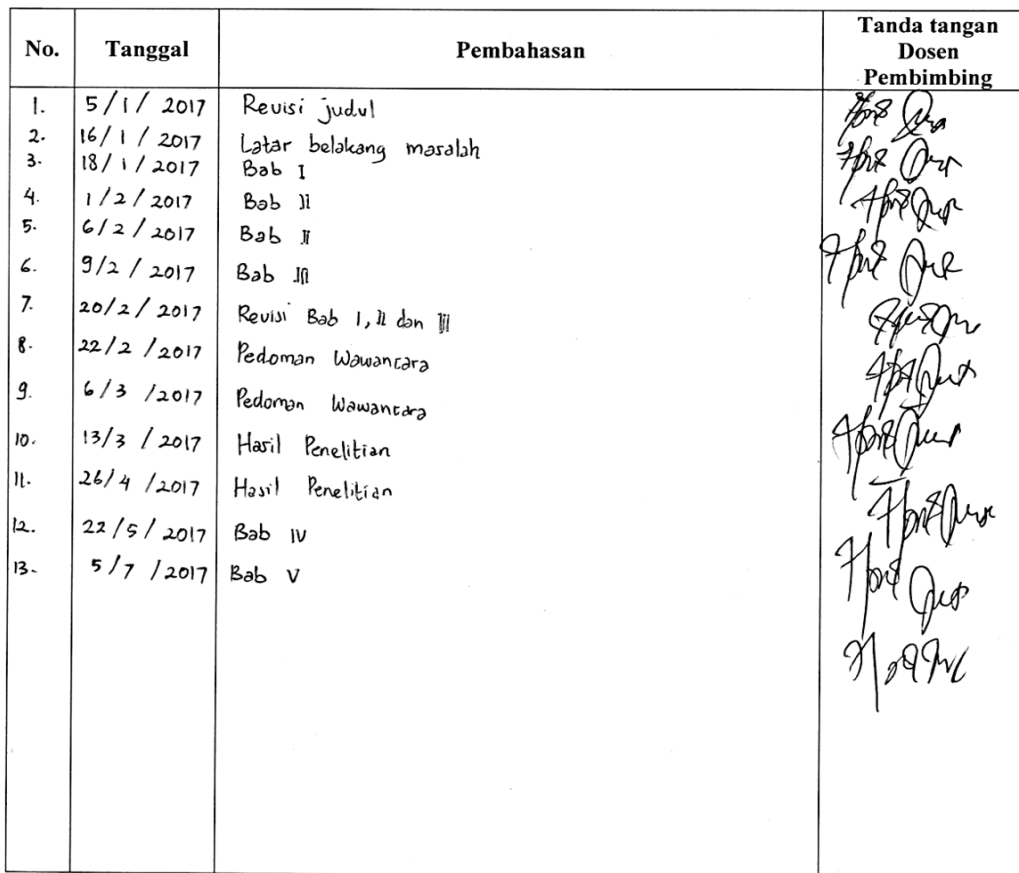 No. Tanggal Pembahasan Tanda tangan Dosen Pembimbing
1. 5/1/ 2017 Revisi judul
2. 16/1/ 2017 Latar belakang masalah
3. 18/1/2017 Bab I
4. 1/2/2017 Bab II
5. 6/2/2017 Bab II
6. 9/2/2017 Bab III
7. 20/2/2017 Revisi Bab I, II dan III
8. 22/2/2017 Pedoman Wawancara
9. 6/3/2017 Pedoman Wawancara
10. 13/3/2017 Hasil Penelitian
11. 26/4/2017 Hasil Penelitian
12. 22/5/2017 Bab IV
13. 5/7/2017 Bab V